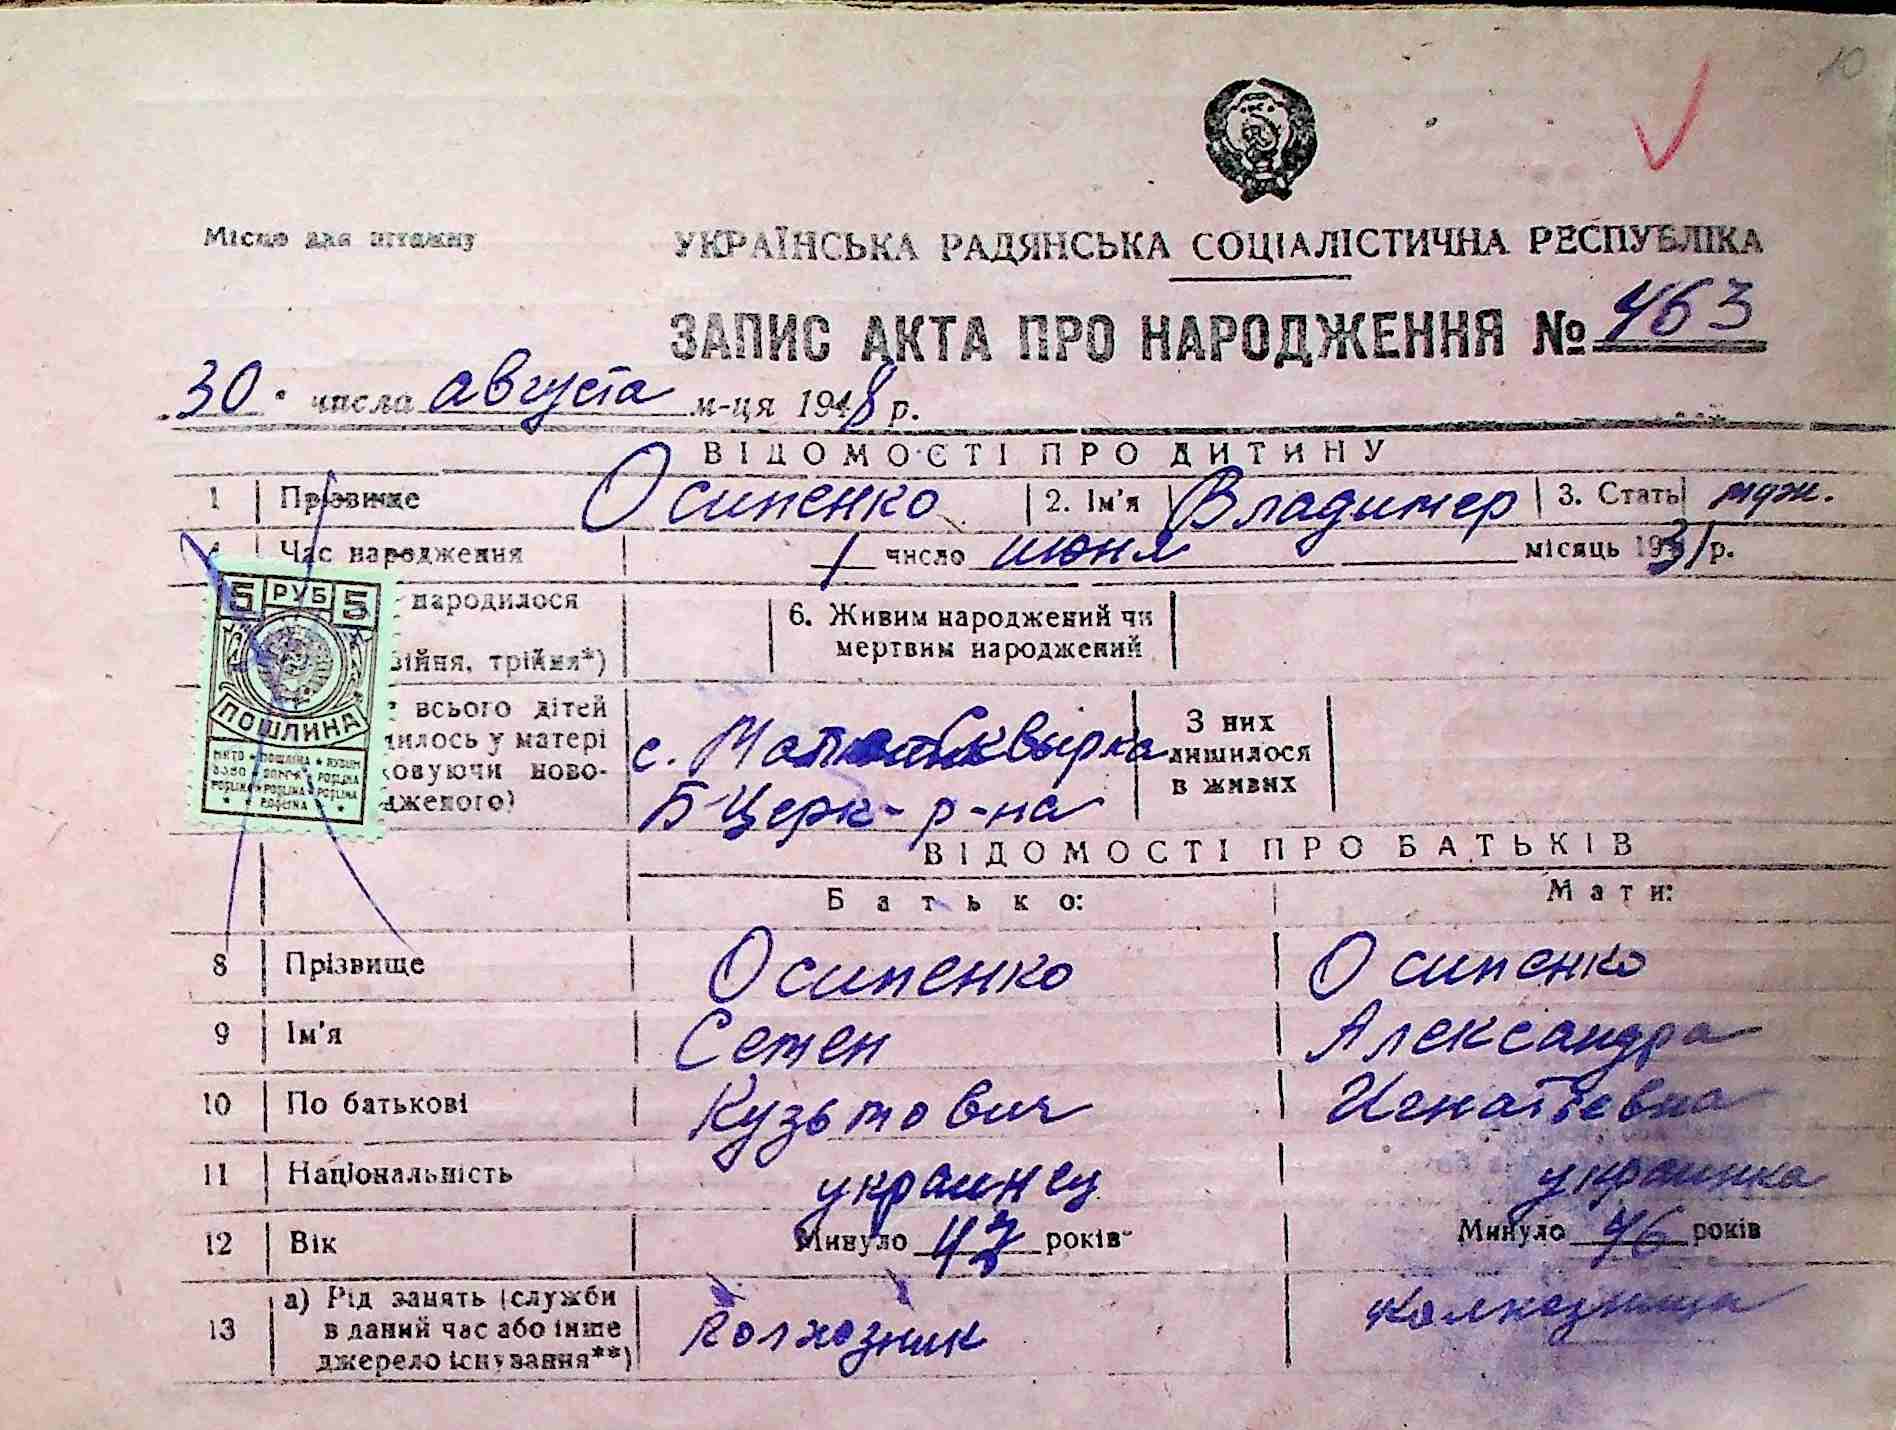 10
Місце для штампу
УКРАЇНСЬКА РАДЯНСЬКА СОЦІАЛІСТИЧНА РЕСПУБЛІКА
ЗАПИС АКТА ПРО НАРОДЖЕННЯ № 463
30 числа августа м-ця 1948 р.
ВІДОМОСТІ ПРО ДИТИНУ
1 Прізвище Осипенко 2. Ім'я Владимер 3. Стать муж.
4 Час народження 1 число июня місяць 1931 р.
народилося
6. Живим народжений чи
мертвим народжений
війня, трійня*)
всього дітей
илось у матері
овуючи ново-
дженого)
с.
Б-Церк- р-на
З них
лишилося
в живих
5 РУБ 5
ПОШЛИНА
ВІДОМОСТІ ПРО БАТЬКІВ
Батько: Мати:
8 Прізвище Осипенко Осипенко
9 Ім'я Семен Александра
10 По батькові Кузьмович Игнатьевна
11 Національність украинец украинка
12 Вік Минуло 47 років Минуло 46 років
13 а) Рід занять (служби
в даний час або інше
джерело існування**)
колхозник колхозница